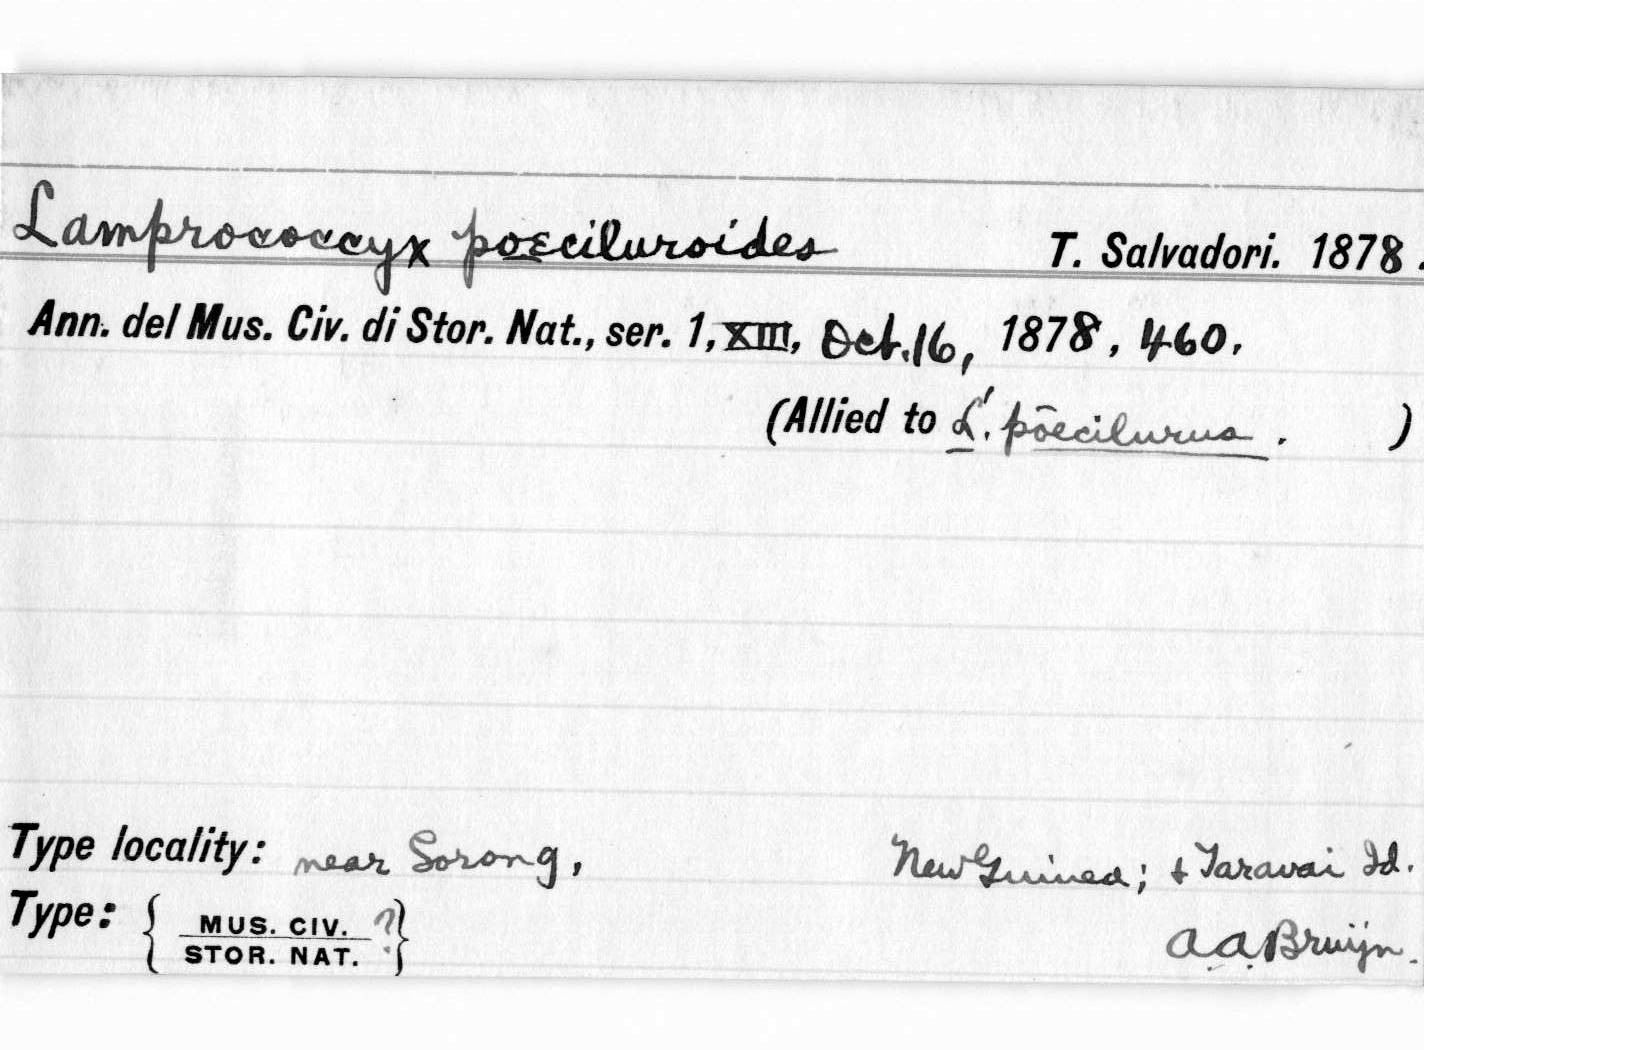 Lamprococcyx poeciluroides T. Salvadori. 1878.
Ann. del Mus. Civ. di Stor. Nat., ser. 1, XIII, Oct. 16, 1878, 460.
(Allied to L. poecilurus. )
Type locality: near Sorong, New Guinea; & Taravai Id.
Type: { MUS. CIV. ? }
STOR. NAT.
A. A. Bruijn.